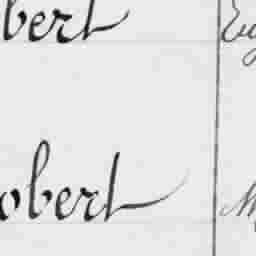 bert
obert